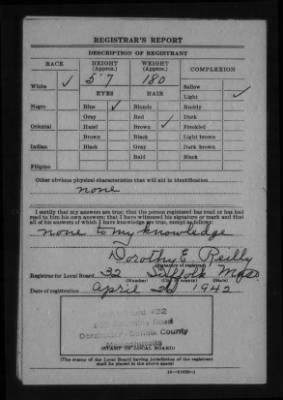 REGISTRAR'S REPORT
DESCRIPTION OF REGISTRANT
RACE HEIGHT (Approx.) WEIGHT (Approx.) COMPLEXION
White ✓ 5'7 180 Sallow
EYES HAIR Light ✓
Negro Blue ✓ Blonde Ruddy
Gray Red Dark
Oriental Hazel Brown ✓ Freckled
Brown Black Light brown
Indian Black Gray Dark brown
Bald Black
Filipino
Other obvious physical characteristics that will aid in identification
none
I certify that my answers are true; that the person registered has read or has had
read to him his own answers; that I have witnessed his signature or mark and that
all of his answers of which I have knowledge are true, except as follows:
none to my knowledge
Dorothy E. Reilly
(Signature of registrar)
Registrar for Local Board 32 Suffolk Mass.
(Number) (City or county) (State)
Date of registration April 26 1942
Suffolk County
Massachusetts
(STAMP OF LOCAL BOARD)
(The stamp of the Local Board having jurisdiction of the registrant
shall be placed in the above space)